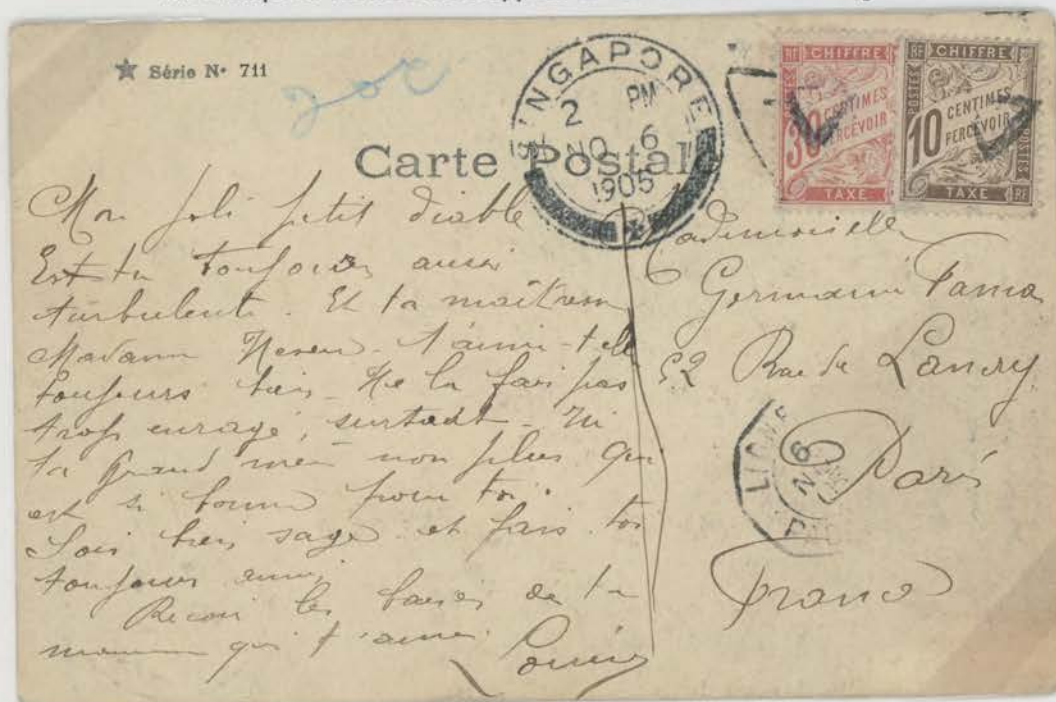 ★ Série N• 711
20c
SINGAPORE
2 PM
NO 6
1905
RF CHIFFRE
POSTES
30 CENTIMES
PERCEVOIR
TAXE
RF CHIFFRE
POSTES
10 CENTIMES
PERCEVOIR
TAXE RF
Carte Postale
Mon joli petit diable
Est tu toujours aussi
turbulente. Et ta maitresse
Madame t'aime-t elle
toujours bien. Ne la fais pas
trop enragé, surtout - Ni
ta grand mère non plus qui
est si bonne pour toi.
Sois bien sage et fais toi
toujours aimer
Recois les baisers de ta
maman qui t'aime
Mademoiselle
Germaine
52 Rue de Lancry
Paris
France
LIGNE
6